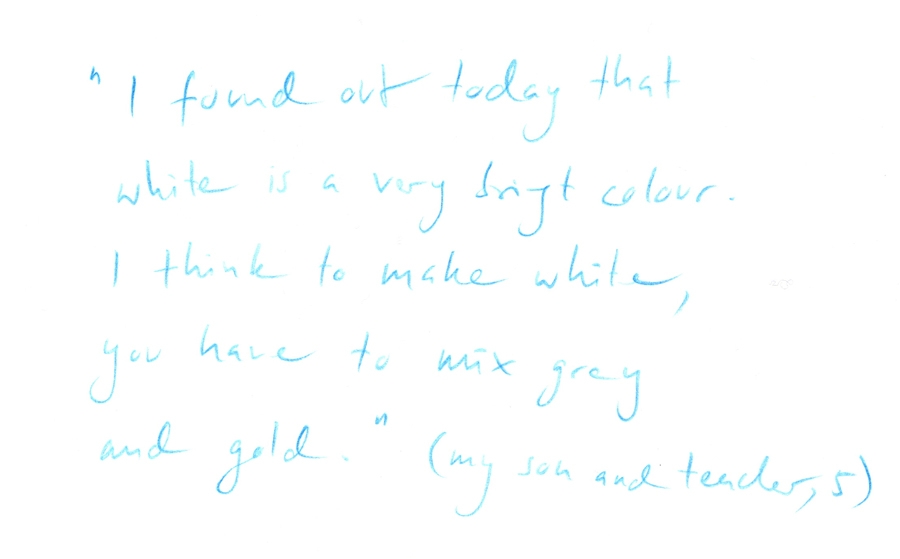 "I found out today that
white is a very brigt colour.
I think to make white,
you have to mix grey
and gold." (my son and teacher, 5)